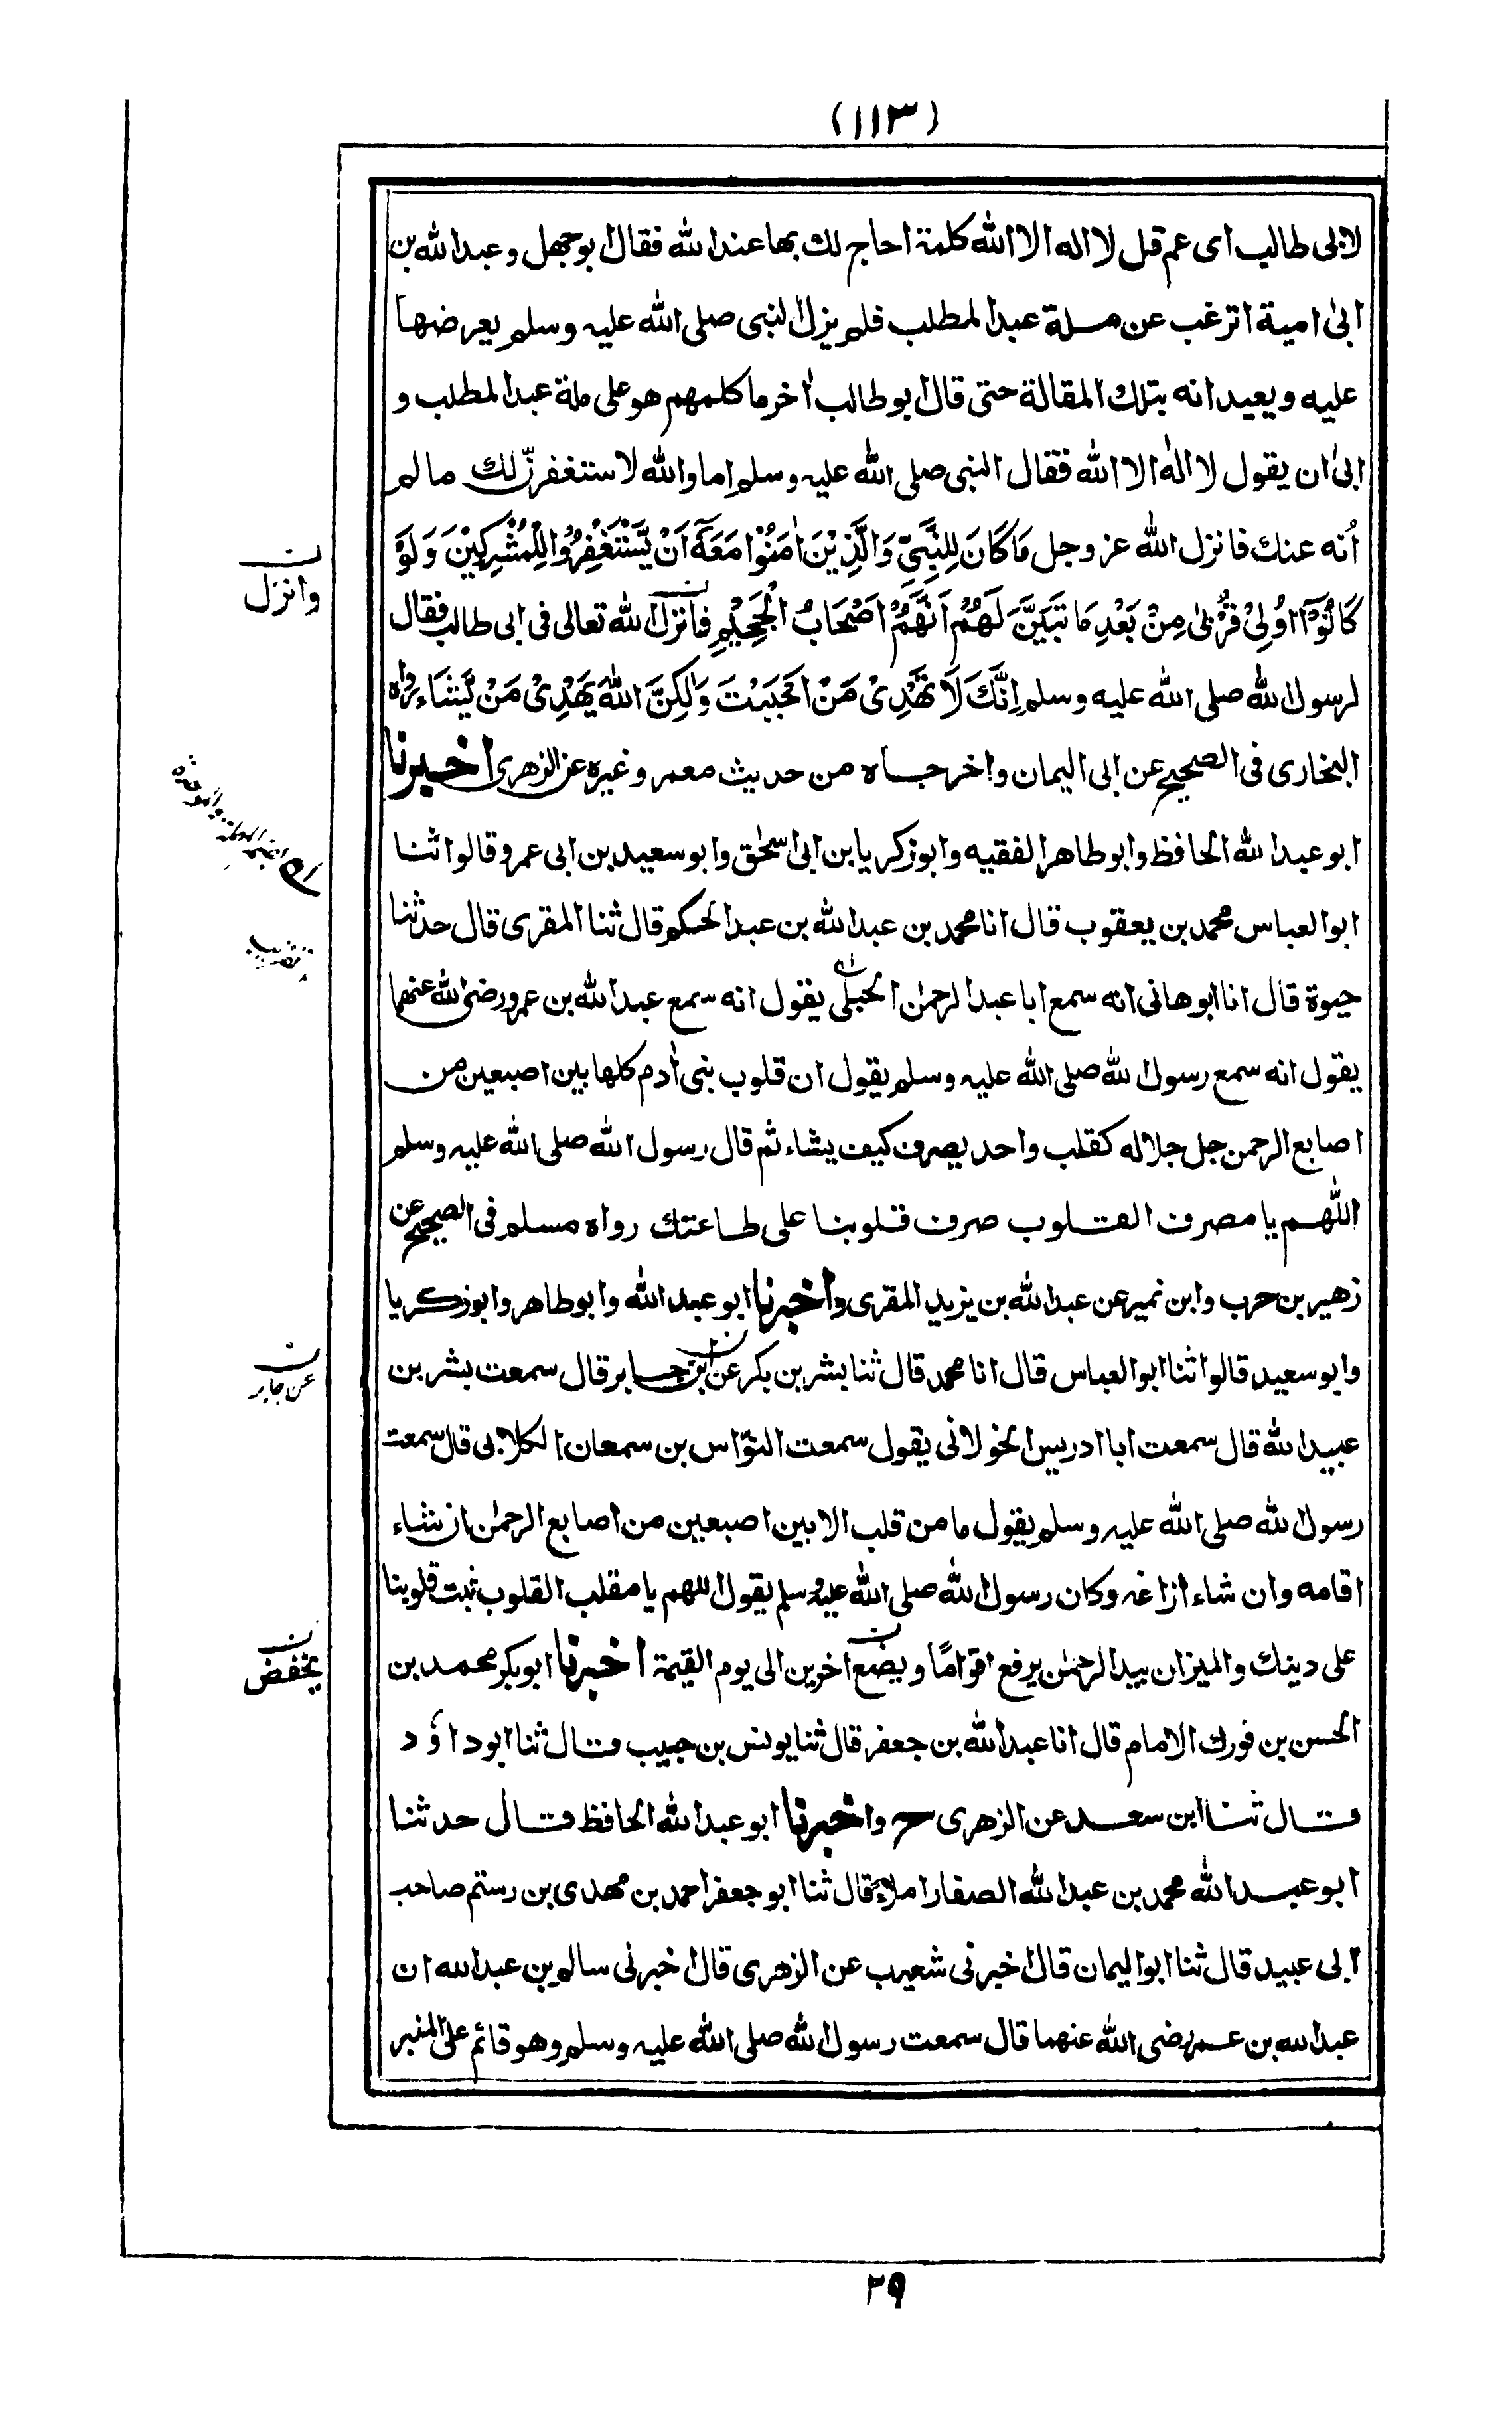 (١١٣)
لابى طالب اى عم قل لا اله الا الله كلمة احاج لك بها عند الله فقال ابوجهل وعبد الله بن
ابى امية اترغب عن ملة عبد المطلب فلم يزل النبى صلى الله عليه وسلم يعرضها
عليه ويعيد انه بتلك المقالة حتى قال ابو طالب اٰخر ما كلمهم هو على ملة عبد المطلب و
ابىٰ ان يقول لا الٰه الا الله فقال النبى صلى الله عليه وسلم اما والله لاستغفرنّ لك ما لم
اُنه عنك فانزل الله عز وجل مَا كَانَ لِلنَّبِيِّ وَالَّذِيْنَ اٰمَنُوْا مَعَهٗٓ اَنْ يَّسْتَغْفِرُوْا لِلْمُشْرِكِيْنَ وَلَوْ
كَانُوْٓا اُولِىْ قُرْبٰى مِنْ بَعْدِ مَا تَبَيَّنَ لَهُمْ اَنَّهُمْ اَصْحَابُ الْجَحِيْمِ فانزل الله تعالى فى ابى طالب فقال
لرسول الله صلى الله عليه وسلم اِنَّكَ لَا تَهْدِىْ مَنْ اَحْبَبْتَ وَلٰكِنَّ اللهَ يَهْدِىْ مَنْ يَّشَاءُ رواه
البخارى فى الصحيح عن ابى اليمان واخرجاه من حديث معمر وغيره عن الزهرى اخبرنا
ابو عبد الله الحافظ وابو طاهر الفقيه وابو زكريا بن ابى اسحٰق وابو سعيد بن ابى عمرو قالوا ثنا
ابو العباس محمد بن يعقوب قال انا محمد بن عبد الله بن عبد الحكم قال ثنا المقرى قال حدثنا
حيوة قال انا ابو هانى انه سمع ابا عبد الرحمٰن الحبلى يقول انه سمع عبد الله بن عمرو رضى الله عنهما
يقول انه سمع رسول الله صلى الله عليه وسلم يقول ان قلوب بنى اٰدم كلها بين اصبعين من
اصابع الرحمن جل جلاله كقلب واحد يصرف كيف يشاء ثم قال رسول الله صلى الله عليه وسلم
اللّٰهم يا مصرف القلوب صرف قلوبنا على طاعتك رواه مسلم فى الصحيح عن
زهير بن حرب وابن نمير عن عبد الله بن يزيد المقرى واخبرنا ابو عبد الله وابو طاهر وابو زكريا
وابو سعيد قالوا ثنا ابو العباس قال انا محمد قال ثنا بشر بن بكر عن ابن جابر قال سمعت بشر بن
عبيد الله قال سمعت ابا ادريس الخولانى يقول سمعت النوّاس بن سمعان الكلابى قال سمعت
رسول الله صلى الله عليه وسلم يقول ما من قلب الا بين اصبعين من اصابع الرحمٰن ان شاء
اقامه وان شاء ازاغه وكان رسول الله صلى الله عليه وسلم يقول اللهم يا مقلب القلوب ثبت قلوبنا
على دينك والميزان بيد الرحمٰن يرفع اقوامًا ويضع اخرين الى يوم القيمة اخبرنا ابو بكر محمد بن
الحسن بن فورك الامام قال انا عبد الله بن جعفر قال ثنا يونس بن حبيب قال ثنا ابو داؤد
قال ثنا ابن سعد عن الزهرى ح واخبرنا ابو عبد الله الحافظ قال حدثنا
ابو عبد الله محمد بن عبد الله الصفار املاءً قال ثنا ابو جعفر احمد بن مهدى بن رستم صاحب
ابى عبيد قال ثنا ابو اليمان قال اخبرنى شعيب عن الزهرى قال اخبرنى سالم بن عبد الله ان
عبد الله بن عمر رضى الله عنهما قال سمعت رسول الله صلى الله عليه وسلم وهو قائم على المنبر
ن
وانزل
ن
عن جابر
ن
يخفض
٢٩